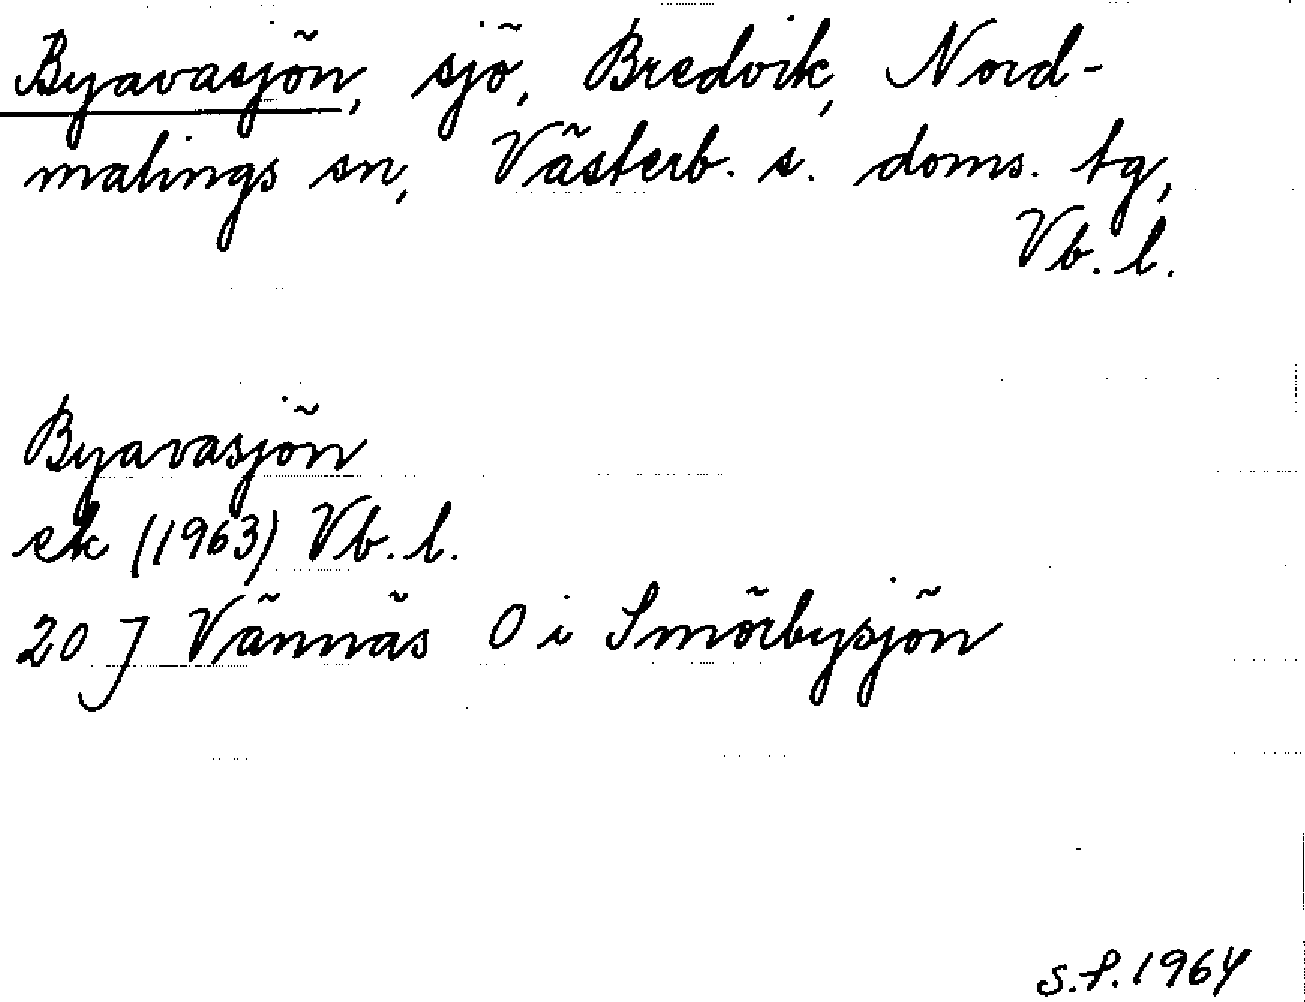 Byavasjön, sjö, Bredvik, Nord-
malings sn, Västerb. s. doms. tg,
Vb. l.
Byavasjön
ek (1963) Vb. l.
20 J Vännäs O i Smörbysjön
S.P. 1964